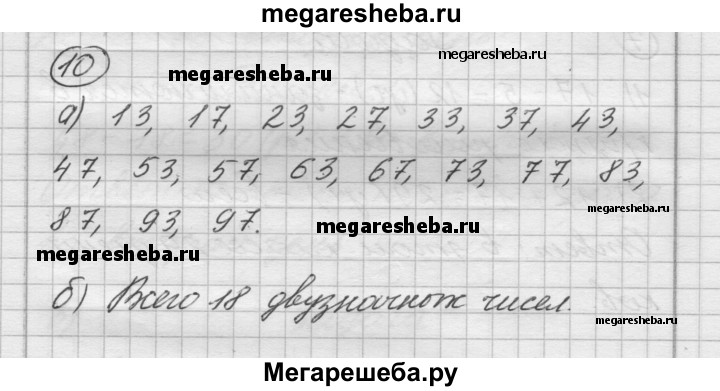 megaresheba.ru
10
megaresheba.ru
а) 13, 17, 23, 27, 33, 37, 43,
47, 53, 57, 63, 67, 73, 77, 83,
megaresheba.ru
87, 93, 97.
megaresheba.ru
megaresheba.ru
б) Всего 18 двузначных чисел.
megaresheba.ru
Мегарешеба.ру